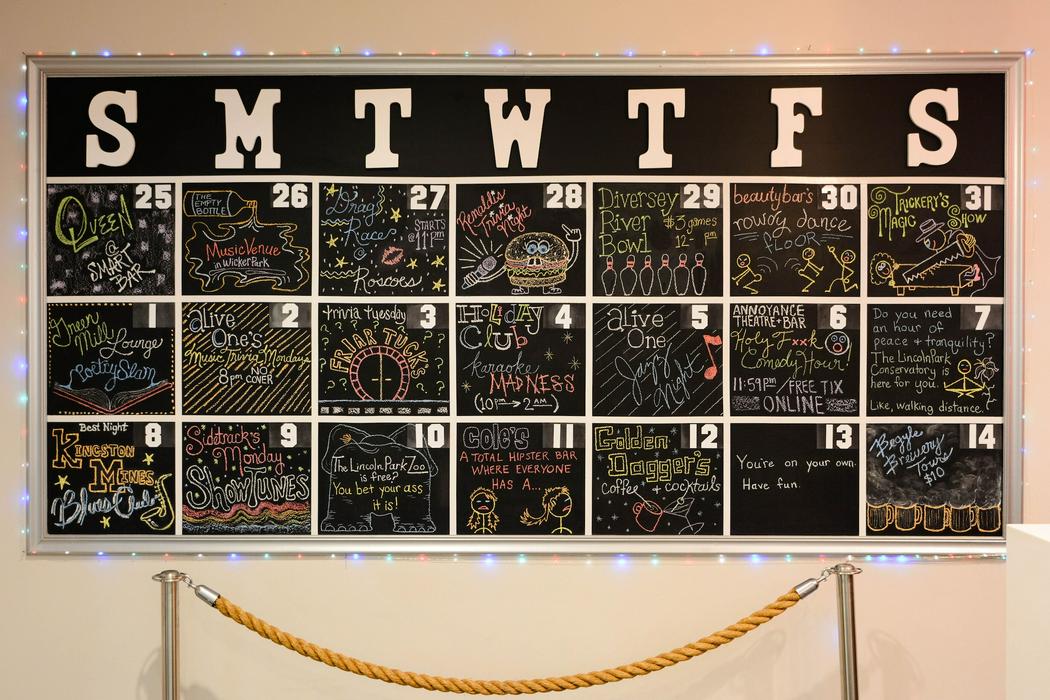 S M T W T F S
25
QUEEN
@
SMART
BAR
26
THE
EMPTY
BOTTLE
Music Venue
in Wicker Park
27
Drag
Race
STARTS
@ 11pm
Roscoes
28
Renaldi's
trivia
night
29
Diversey
River
Bowl
$3 games
12- pm
30
beautybar's
rowdy dance
FLOOR
31
TRICKERY'S
MAGIC SHOW
1
Green
Mill Lounge
Poetry Slam
2
alive
One's
Music Trivia Mondays
NO
8pm COVER
3
trivia tuesday
FRIAR TUCKS
4
HOLiDAY
Club
karaoke
MADNESS
(10pm → 2AM)
5
alive
One
Jazz
Night
6
ANNOYANCE
THEATRE + BAR
Holy F**k
Comedy Hour
11:59pm FREE TIX
ONLINE
7
Do you need
an hour of
peace + tranquility?
The Lincoln Park
Conservatory is
here for you.
Like, walking distance.
8
Best Night
KINGSTON
MINES
Blues Club
9
Sidetrack's
Monday
SHOWTUNES
10
The Lincoln Park Zoo
is free?
You bet your ass
it is!
11
cole's
A TOTAL HIPSTER BAR
WHERE EVERYONE
HAS A...
12
Golden
Dagger's
coffee + cocktails
13
You're on your own.
Have fun.
14
Begyle
Brewery
Tours
$10